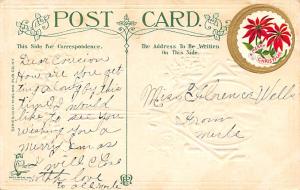 POST CARD.
This Side for Correspondence.
The Address To Be Written
on This Side.
Dear Cousion
How are you get
ing along by this
time I would
like to see you
Wishing you a
Merry Xmas
I will Close
with love
to all
Miss Florence Wells
From
Merle